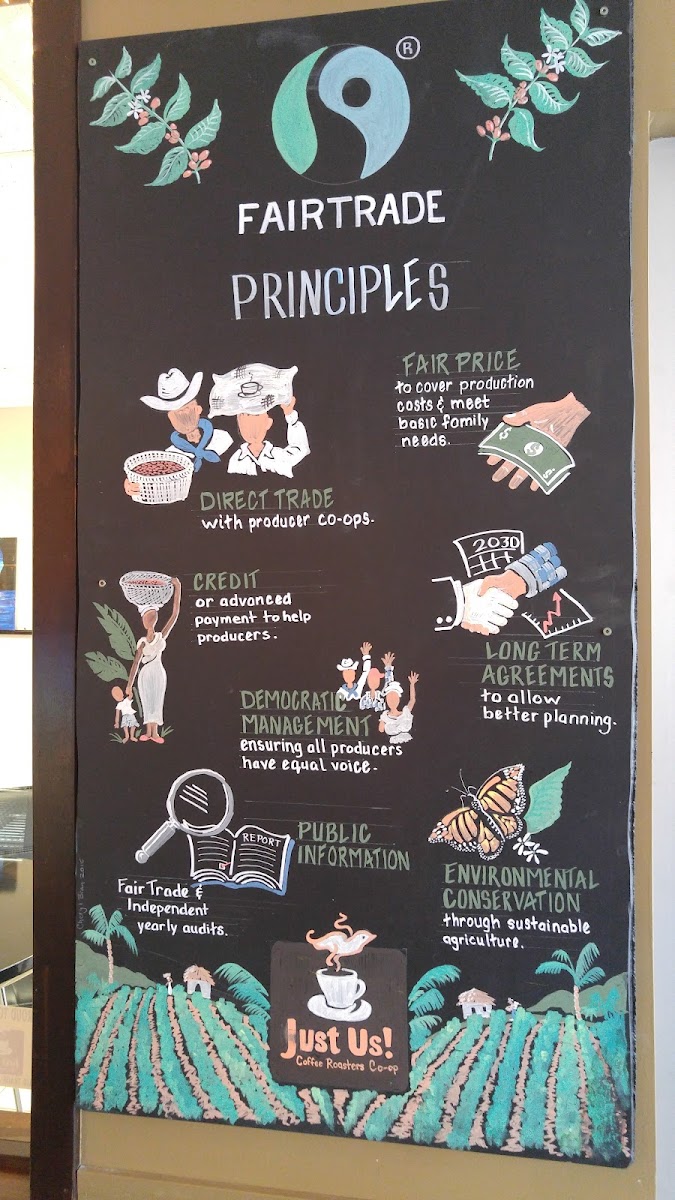 ®
FAIRTRADE
PRINCIPLES
FAIR PRICE
to cover production
costs & meet
basic family
needs.
DIRECT TRADE
with producer co-ops.
2030
CREDIT
or advanced
payment to help
producers.
LONG TERM
AGREEMENTS
to allow
better planning.
DEMOCRATIC
MANAGEMENT
ensuring all producers
have equal voice.
REPORT
PUBLIC
INFORMATION
Fair Trade &
Independent
yearly audits.
ENVIRONMENTAL
CONSERVATION
through sustainable
agriculture.
Just Us!
Coffee Roasters Co-op